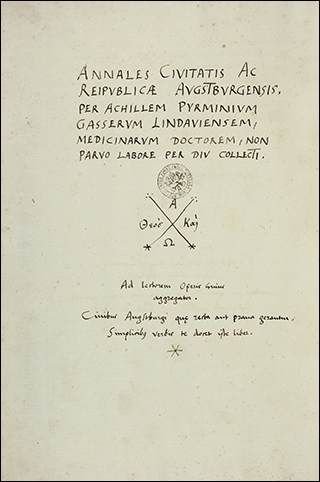 ANNALES CIVITATIS AC
REIPUBLICÆ AUGSTBURGENSIS,
PER ACHILLEM PYRMINIUM
GASSERUM LINDAVIENSEM,
MEDICINARUM DOCTOREM, NON
PARVO LABORE PER DIU COLLECTI.
A
Θεὸς Καὶ
Ω
Ad lectorem Operis huius
aggregator.
Civibus Augstburgi quę recta aut prava gerantur,
Simplicibus verbis te docet iste liber.